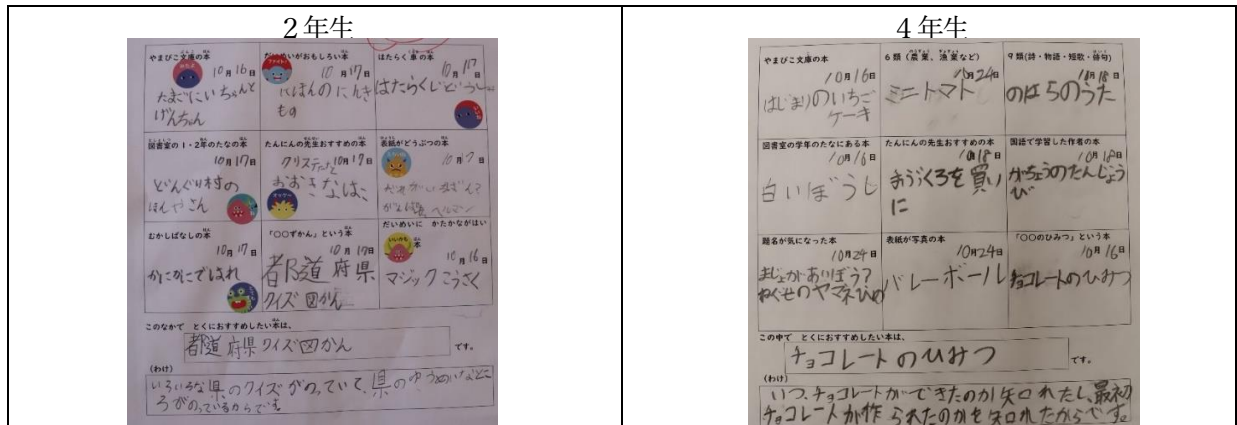 ２年生
やまびこ文庫の本
10月16日
たまごにいちゃんと
げんちゃん
だいめいがおもしろい本
10月17日
にほんのにんき
もの
はたらく車の本
10月17日
はたらくじどうしゃ
図書室の1・2年のたなの本
10月17日
どんぐり村の
ほんやさん
たんにんの先生おすすめの本
10月17日
クリステルと
おおきなは、
表紙がどうぶつの本
10月7日
むかしばなしの本
10月17日
かにかにではれ
「〇〇ずかん」という本
10月17日
都道府県
クイズ図かん
だいめいに かたかながはいる本
10月16日
マジックこうさく
このなかで とくにおすすめしたい本は、
都道府県クイズ図かん
です。
(わけ)
いろいろな県のクイズがのっていて、県のゆうめいなとこ
ろがのっているからです。
４年生
やまびこ文庫の本
10月16日
はじまりのいちご
ケーキ
6類(農業、漁業など)
10月24日
ミニトマト
9類(詩・物語・短歌・俳句)
10月18日
のはらのうた
図書室の学年のたなにある本
10月16日
白いぼうし
たんにんの先生おすすめの本
10月18日
手ぶくろを買い
に
国語で学習した作者の本
10月18日
がちょうのたんじょう
び
題名が気になった本
10月24日
まじょがあいぼう？
ねぐせのヤマネひめ
表紙が写真の本
10月24日
バレーボール
「〇〇のひみつ」という本
10月16日
チョコレートのひみつ
この中で とくにおすすめしたい本は、
チョコレートのひみつ
です。
(わけ)
いつ、チョコレートができたのか知れたし、最初
チョコレートが作られたのかを知れたからです。